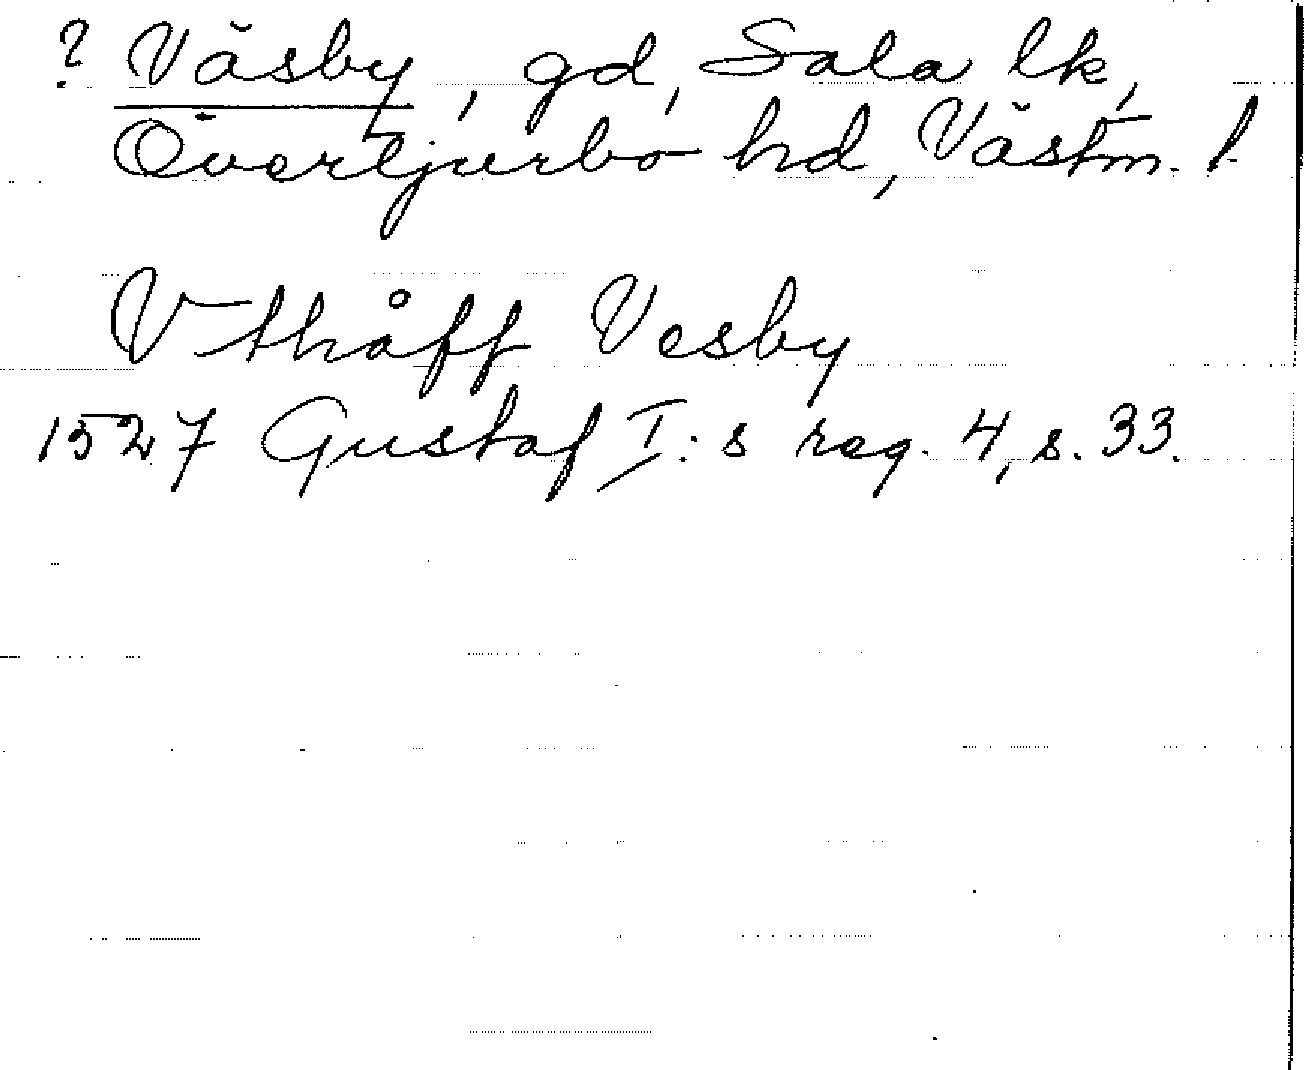 ? Väsby, gd, Sala lk,
Övertjurbo hd, Västm. l.
Vthåff Vesby
1527 Gustaf I:s reg. 4, s. 33.